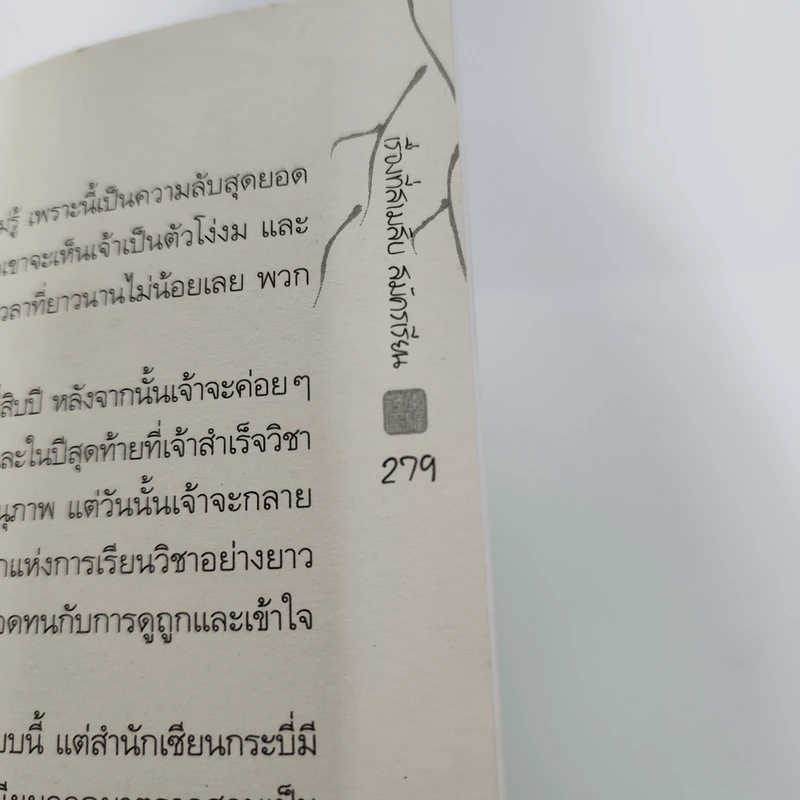 เพราะนี้เป็นความลับสุดยอด
เขาจะเห็นเจ้าเป็นตัวโง่งม และ
ที่ยาวนานไม่น้อยเลย พวก
สิบปี หลังจากนั้นเจ้าจะค่อยๆ
ละในปีสุดท้ายที่เจ้าสำเร็จวิชา
นุภาพ แต่วันนั้นเจ้าจะกลาย
แห่งการเรียนวิชาอย่างยาว
ดทนกับการดูถูกและเข้าใจ
บบนี้ แต่สำนักเซียนกระบี่มี
เรื่องที่สามสิบ สมัครเรียน
279